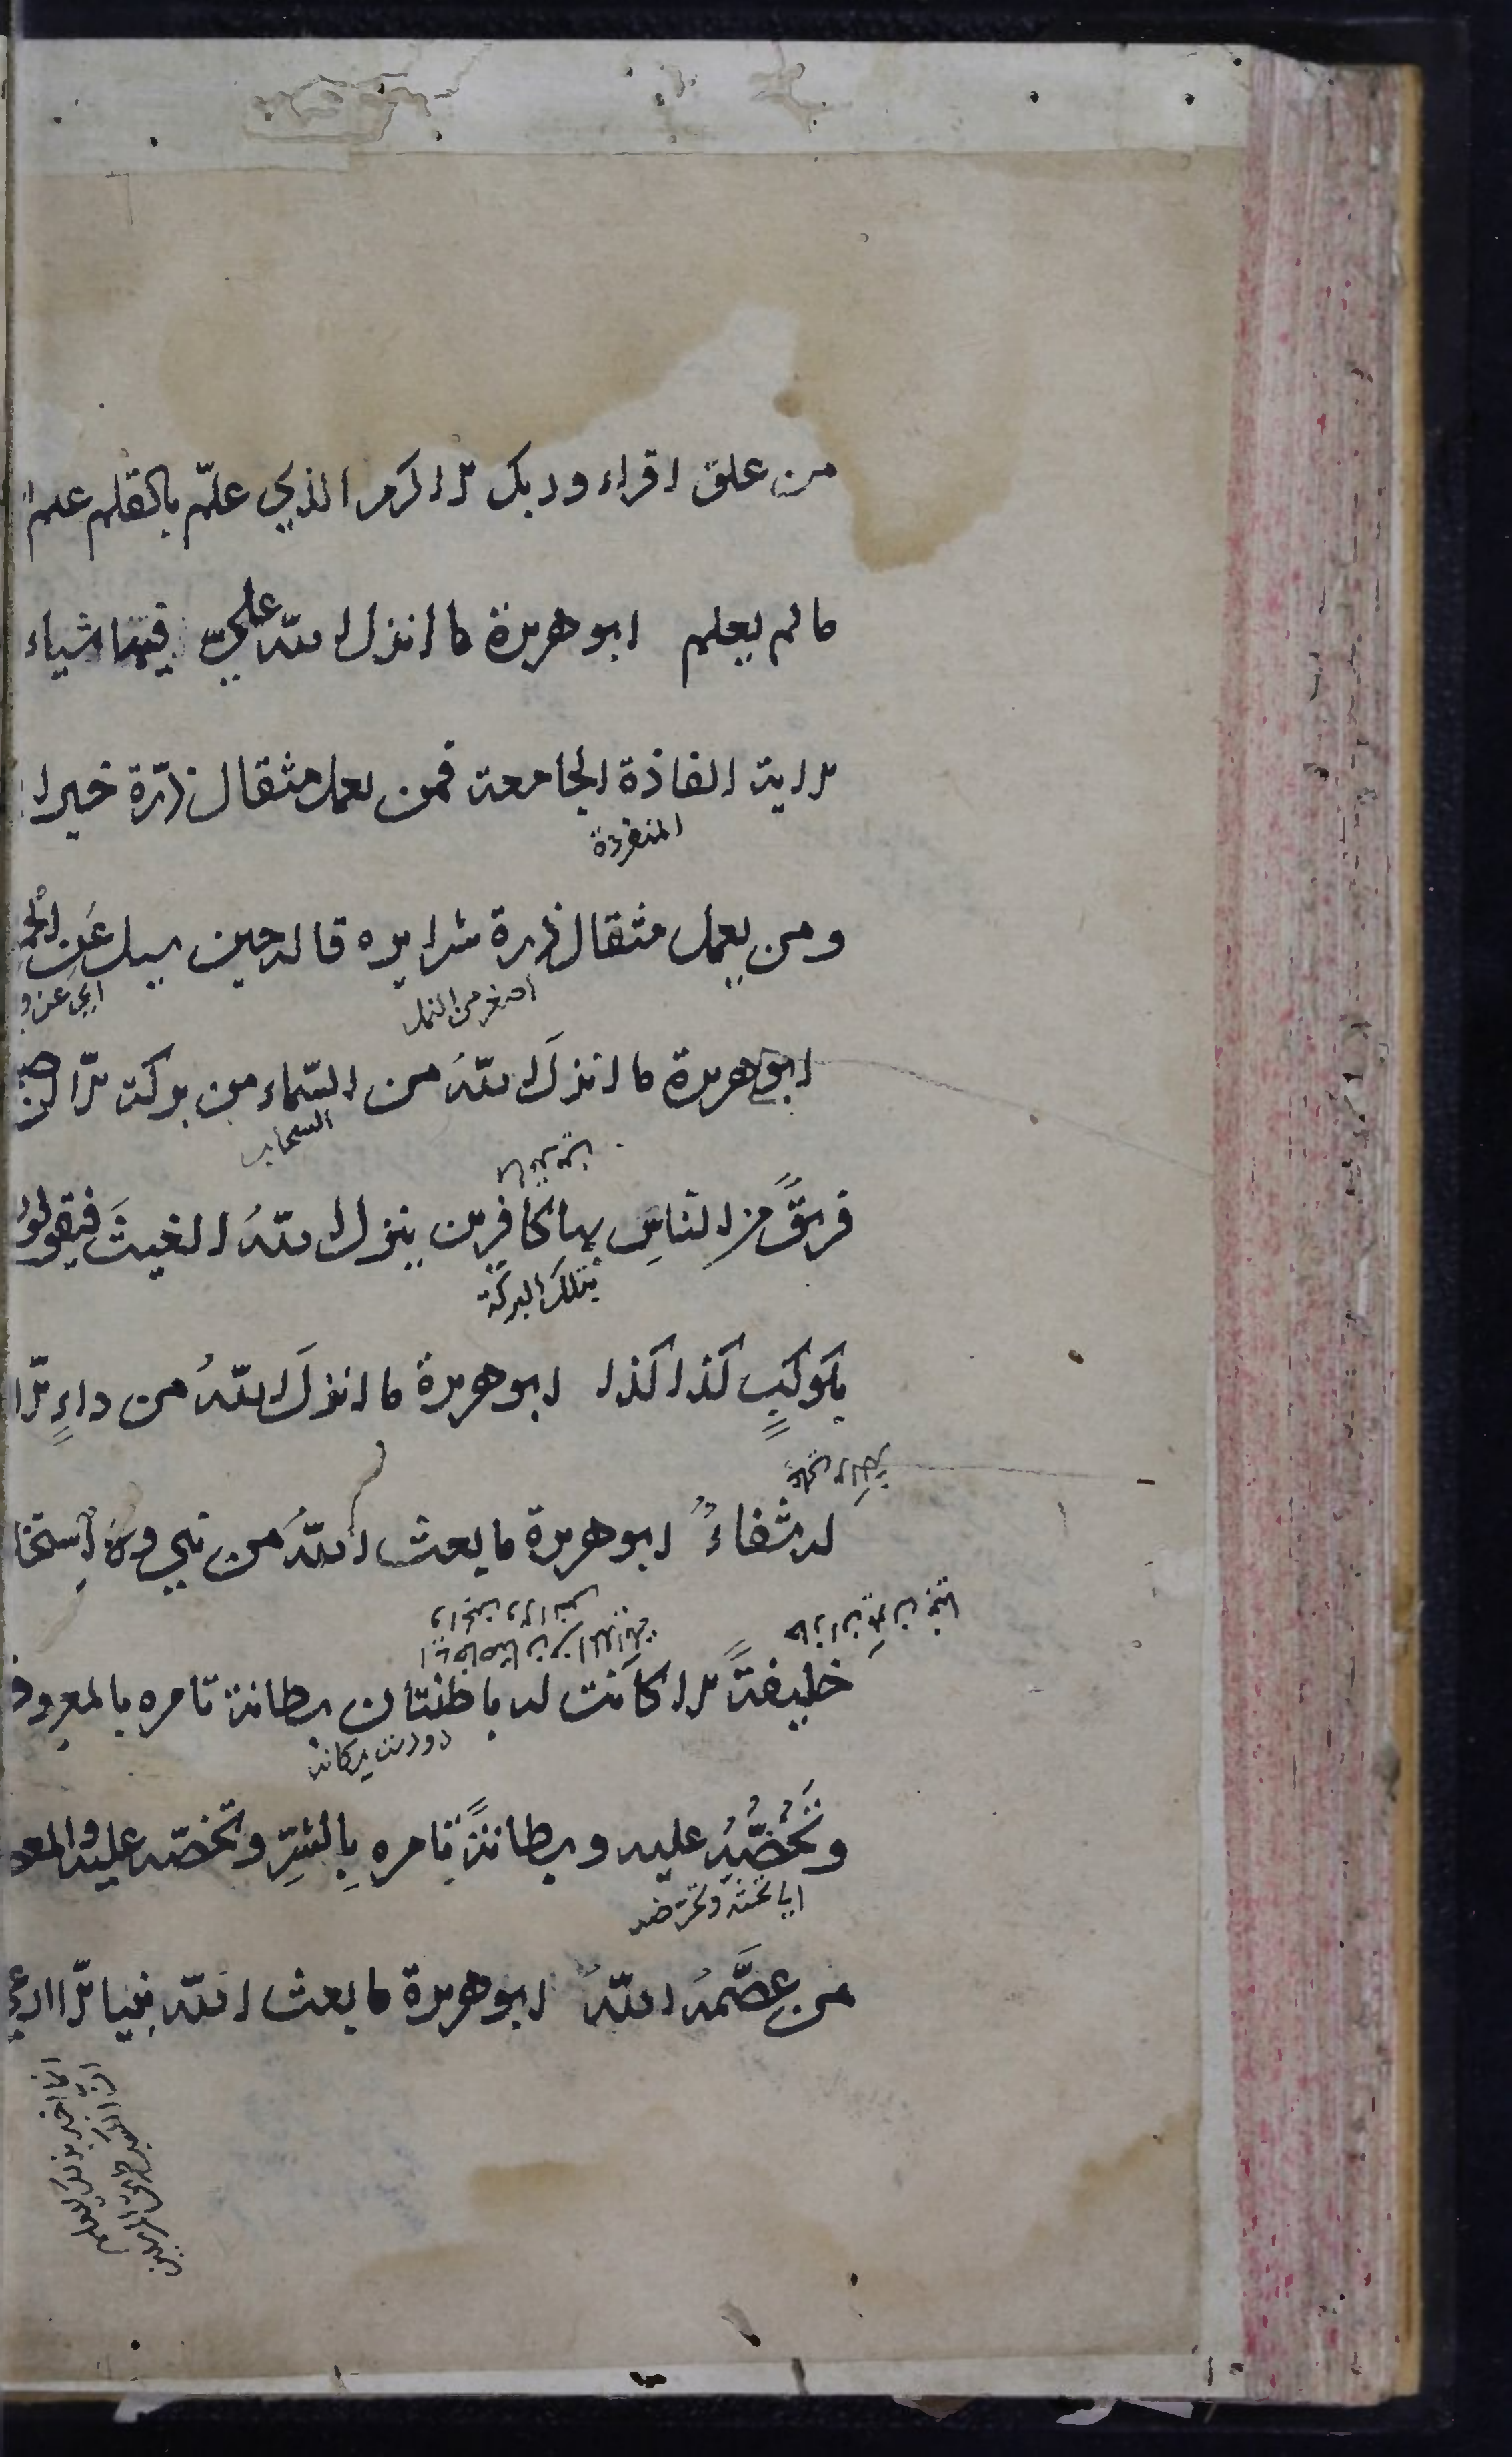 من علق اقراء وربك الاكرم الذي علّم بالقلم علم
ما لم يعلم ابو هريرة ما انزل الله علي فيها شياء
الاية الفاذة الجامعة فمن يعمل مثقال ذرّة خيرا
المنفردة
ومن يعمل مثقال ذرة شرا يره قاله حين سيل عَن
اصغر من النمل
اي عن
ابو هريرة ما انزلَ اللهُ من السّماء من بركة الّا اصبح
السحاب
فريقٌ من الناسِ بها كافرين ينزل اللهُ الغيثَ فيقولوُ
بتلك البركة
بكوكبٍ كذا كذا ابو هريرة ما انزلَ اللهُ من داءٍ الّا
له شفاءٌ ابو هريرة ما بعث اللهُ من نبي ولا استخلف
خليفةً الا كانت له باطنتان بطانة تامره بالمعروف
وتَحُضُّهُ عليه وبطانةٌ تامرهِ بِالشرِّ وتحضّه عليه والمعصوم
اي تحثه وتحرّضه
من عصَّمهُ اللهُ ابو هريرة ما بعث اللهُ نبيا الّا